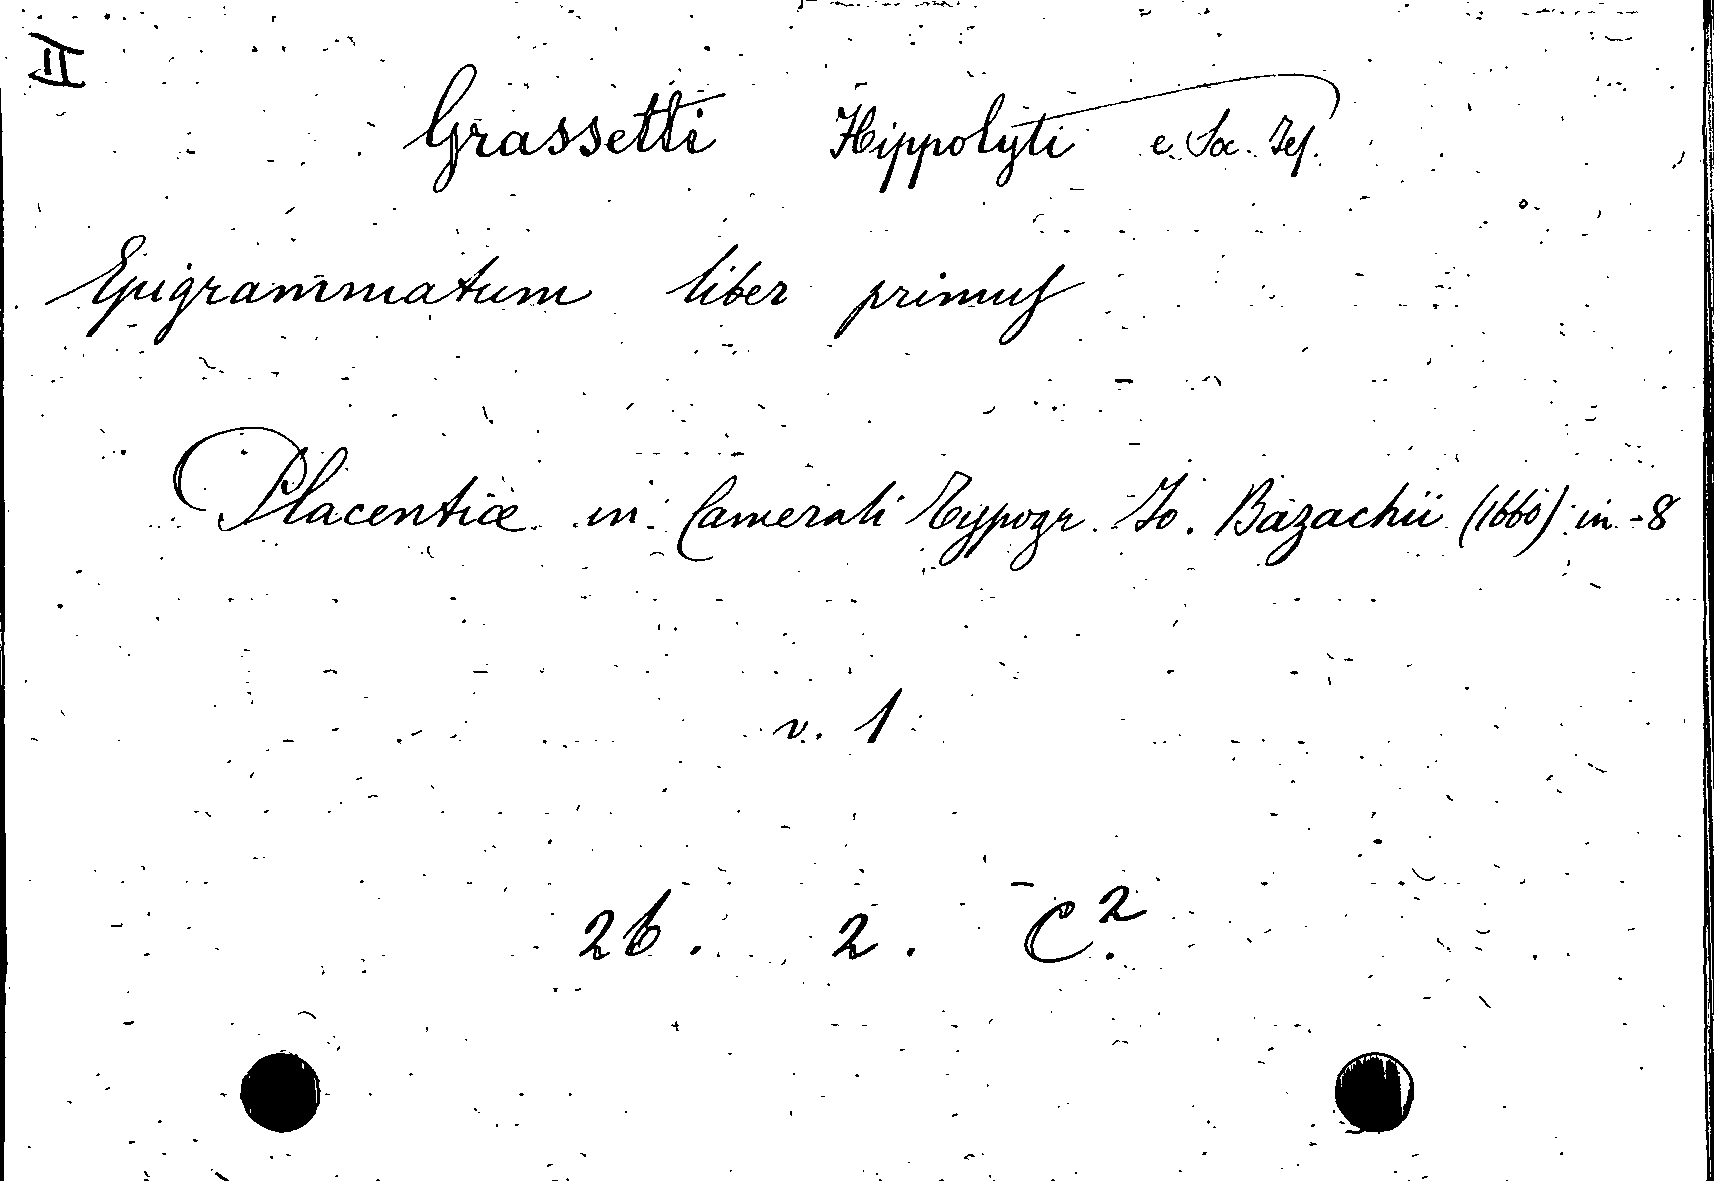 II
Grassetti Hippolyti e. Soc. Jes.
Epigrammatum liber primus
Placentiæ in Camerali Typogr. Jo. Bazachii (1660) in-8
v. 1
26. 2. C.²